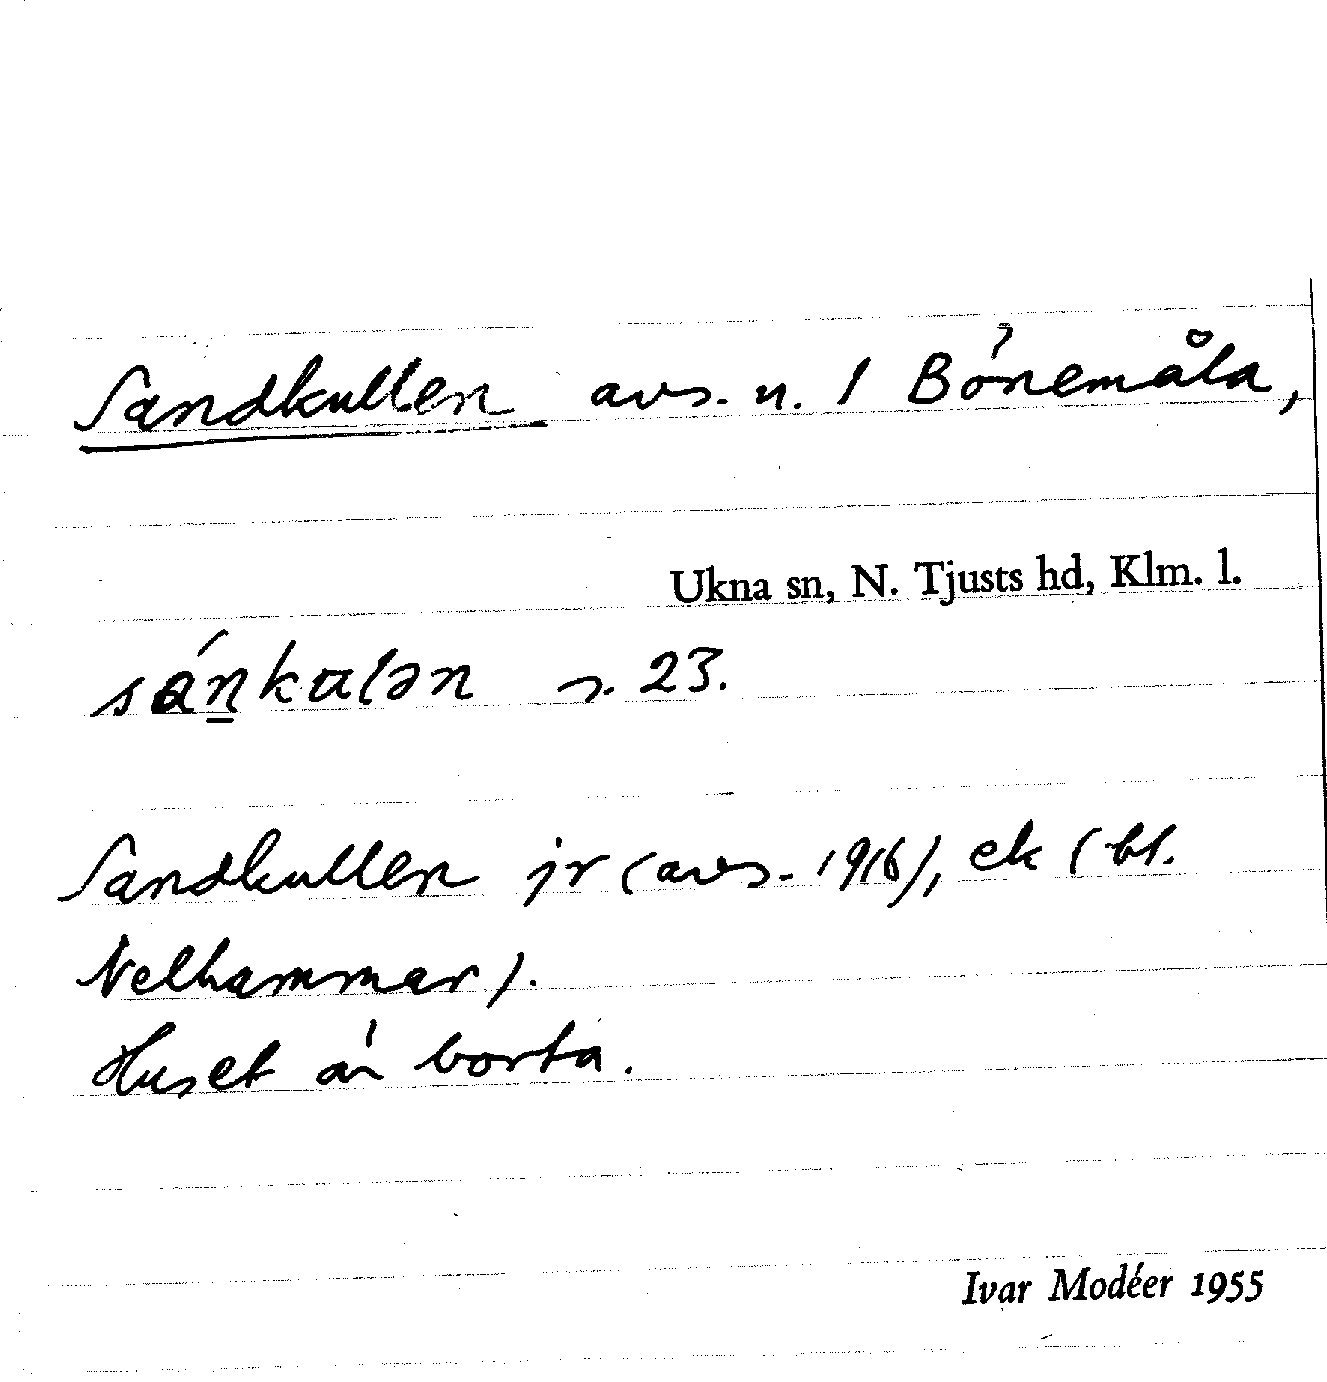 Sandkullen avs. u. 1 Bönemåla,
Ukna sn, N. Tjusts hd, Klm. l.
sán̲kulən s. 23.
Sandkullen jr (avs. 1916), ek (bl.
Nelhammar).
Huset är borta.
Ivar Modéer 1955